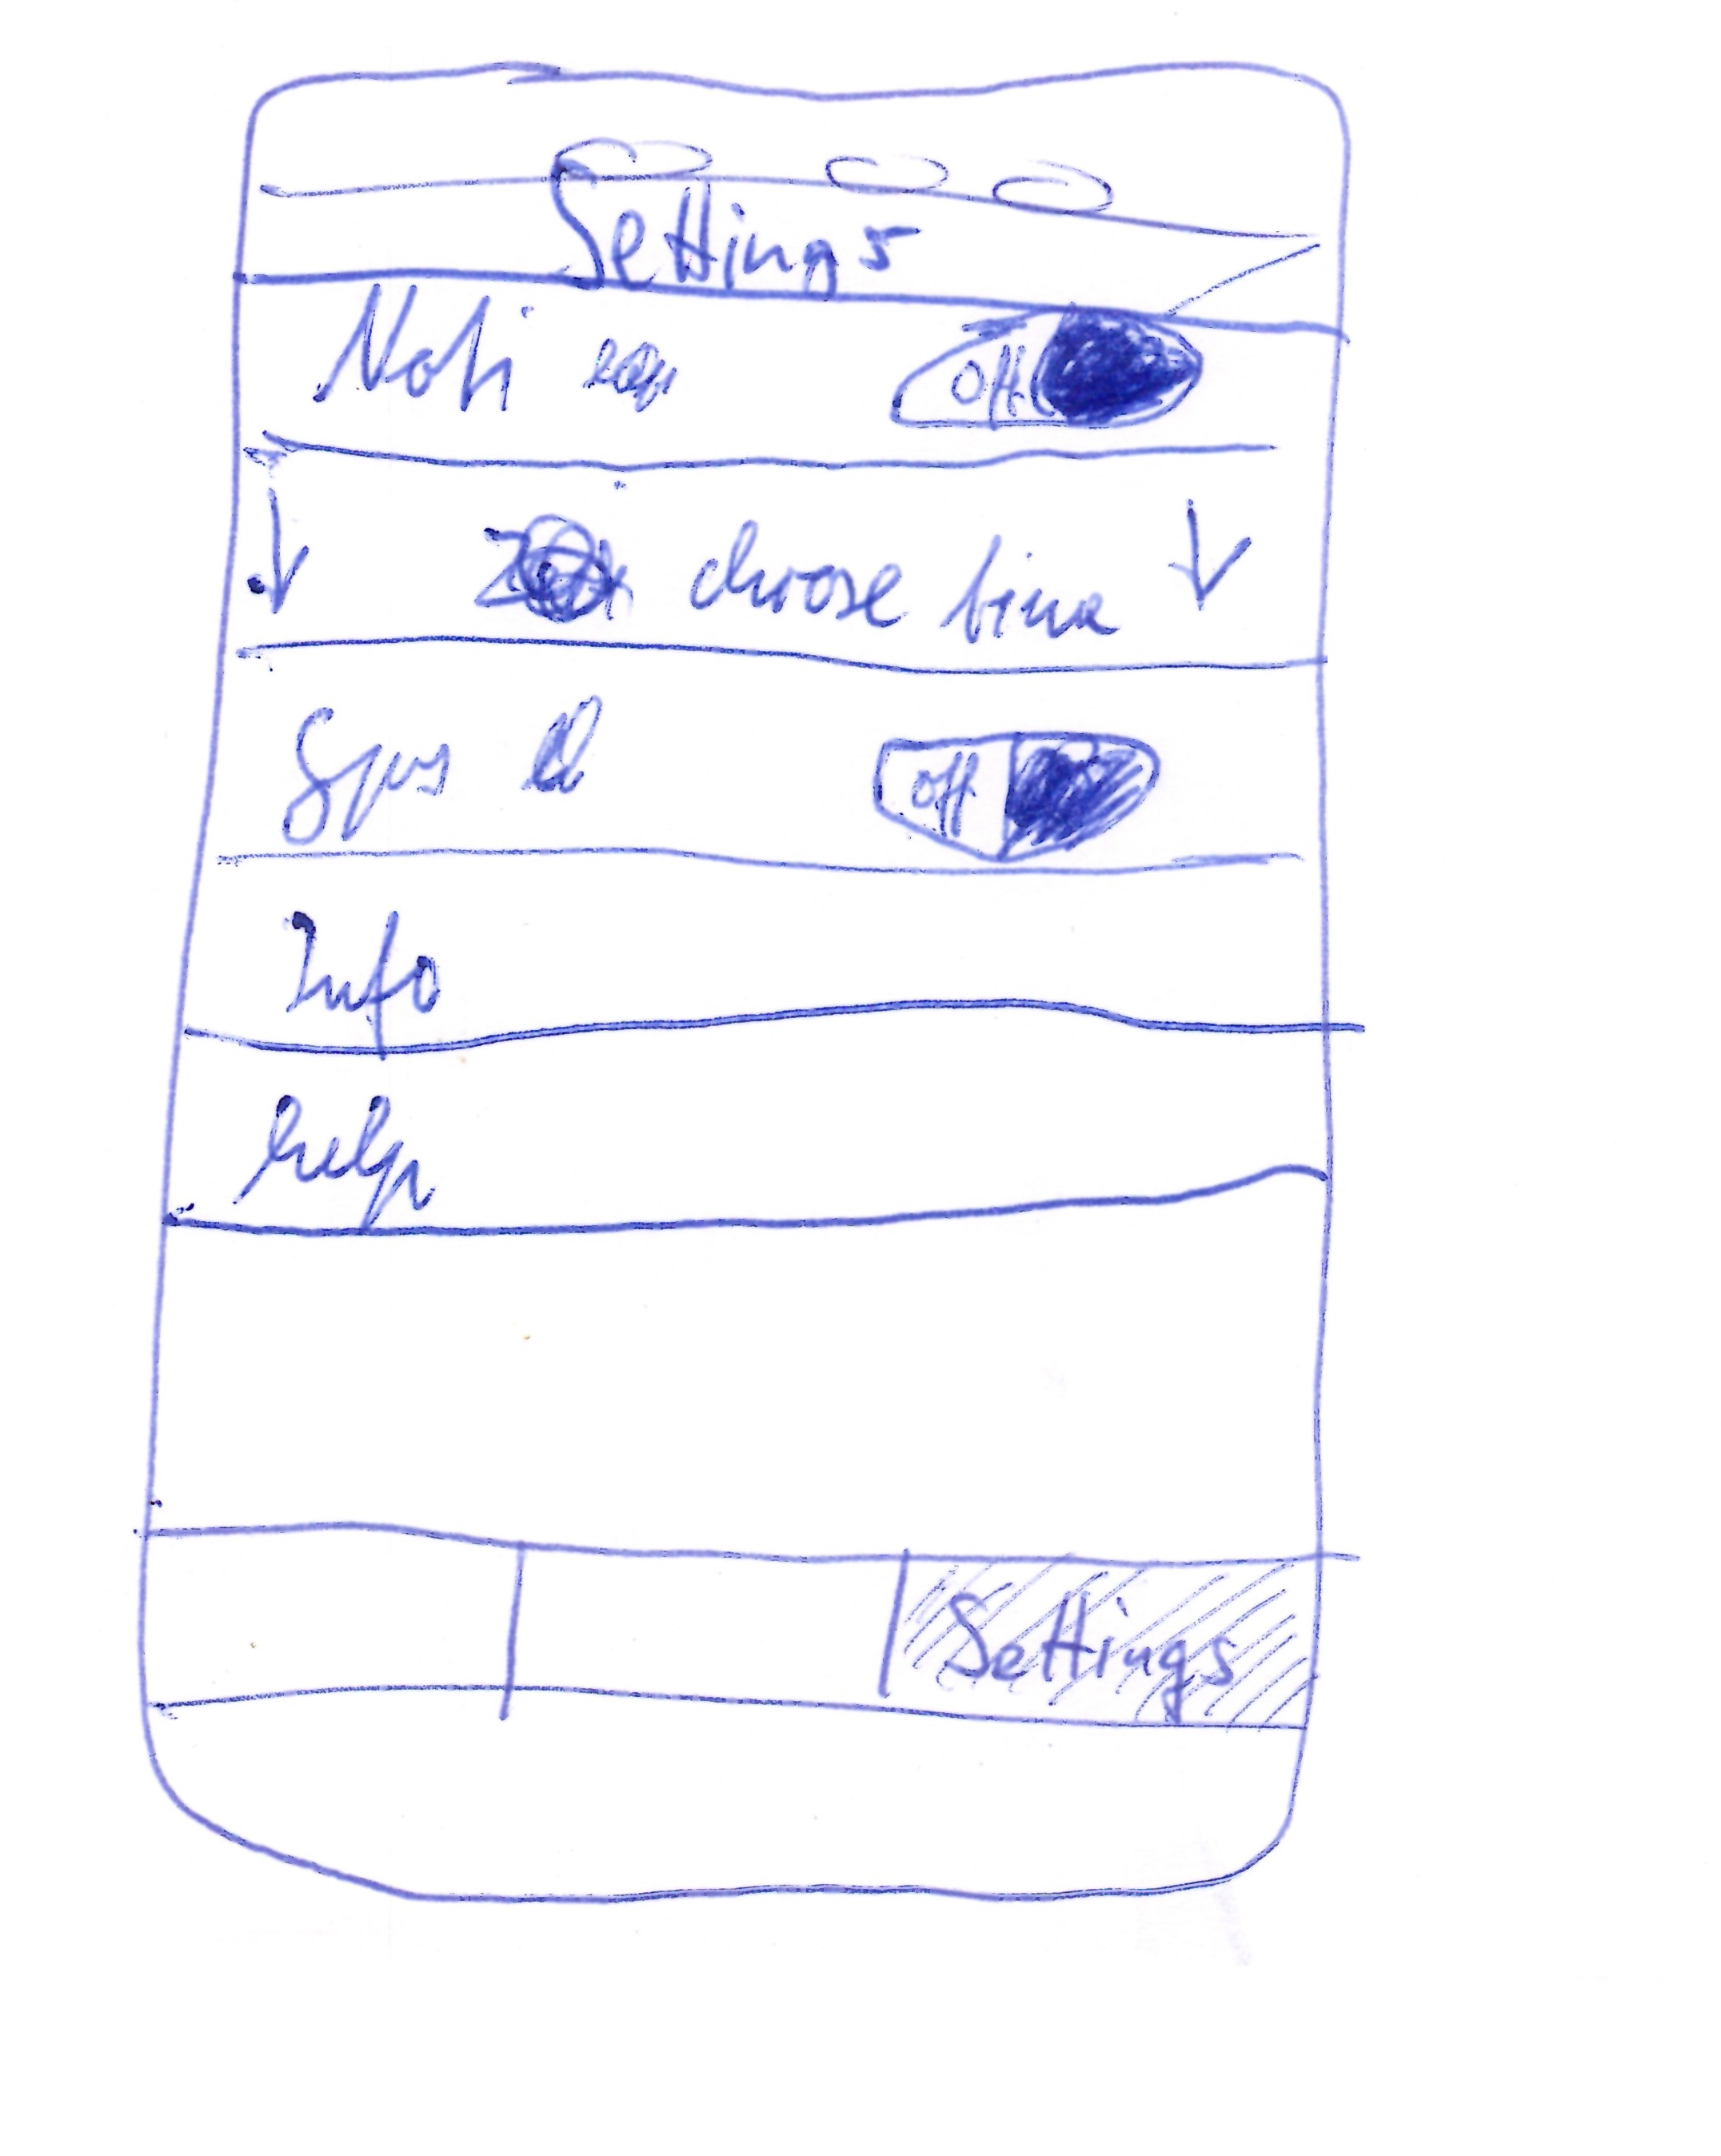 Settings
Noti off
choose time
off
Info
help
Settings